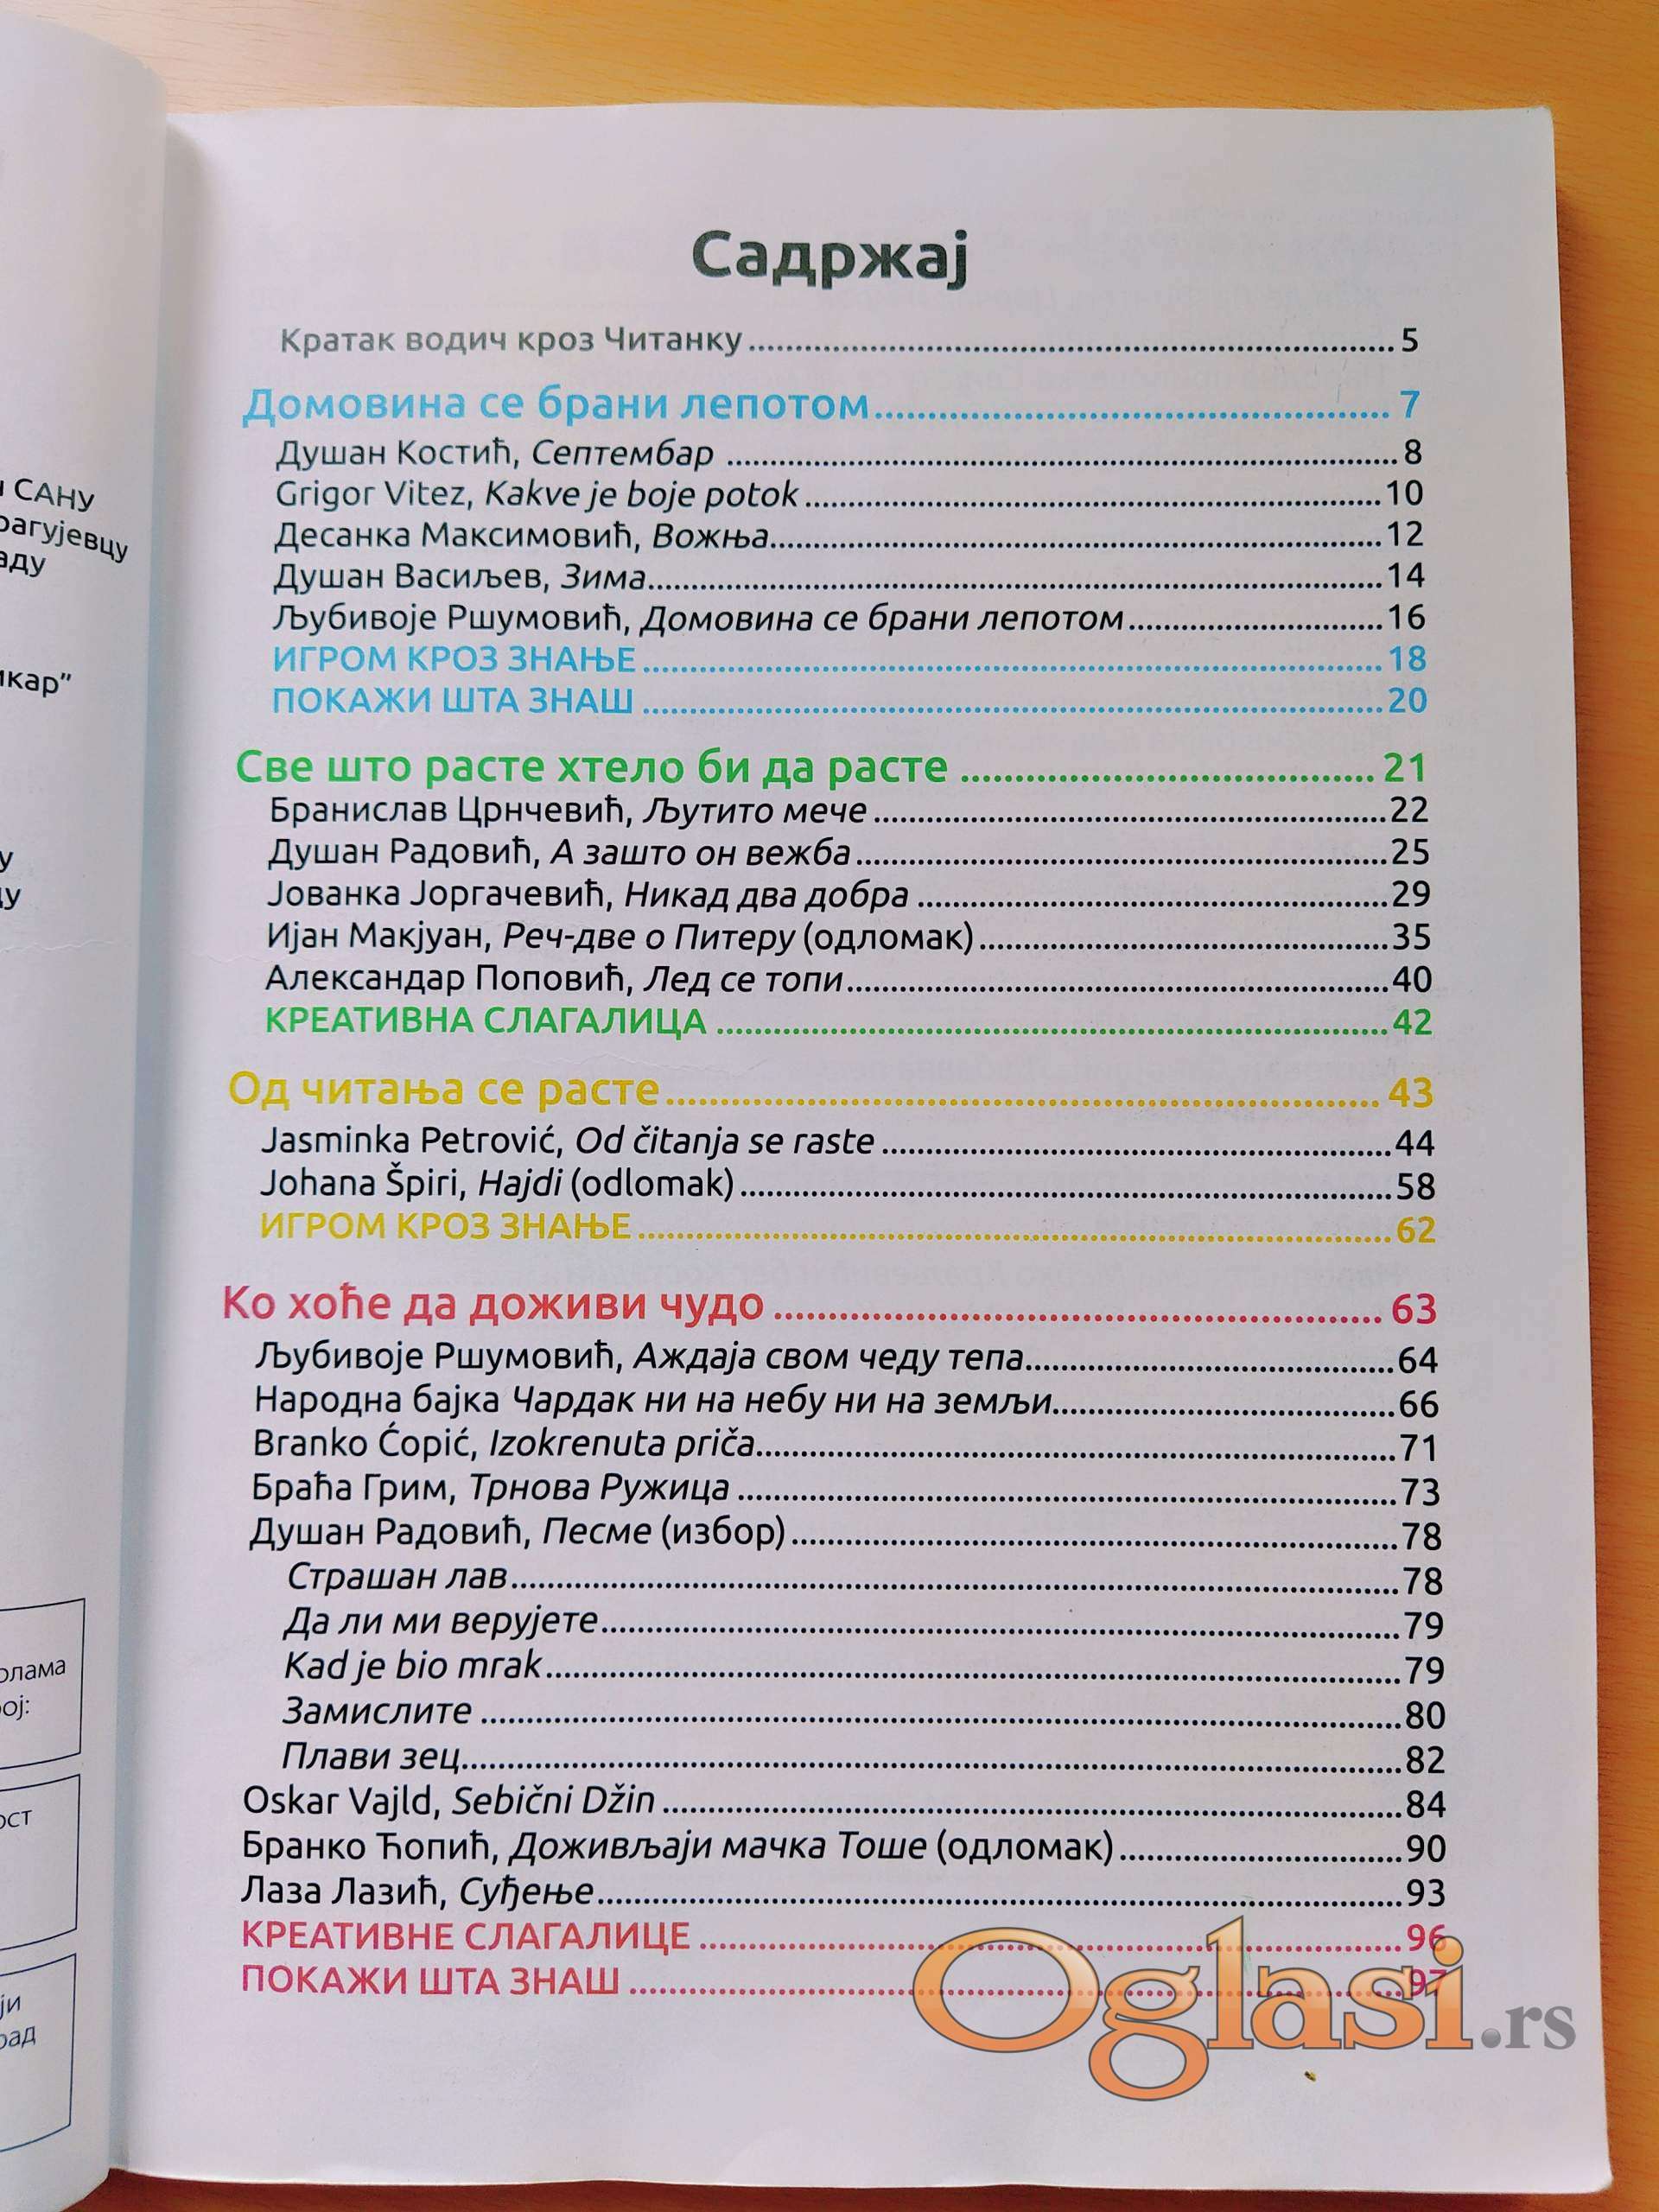 САНУ
рагујевцу
аду
икар”
у
у
олама
ој:
ост
ји
рад
Садржај
Кратак водич кроз Читанку 5
Домовина се брани лепотом 7
Душан Костић, Септембар 8
Grigor Vitez, Kakve je boje potok 10
Десанка Максимовић, Вожња 12
Душан Васиљев, Зима 14
Љубивоје Ршумовић, Домовина се брани лепотом 16
ИГРОМ КРОЗ ЗНАЊЕ 18
ПОКАЖИ ШТА ЗНАШ 20
Све што расте хтело би да расте 21
Бранислав Црнчевић, Љутито мече 22
Душан Радовић, А зашто он вежба 25
Јованка Јоргачевић, Никад два добра 29
Ијан Макјуан, Реч-две о Питеру (одломак) 35
Александар Поповић, Лед се топи 40
КРЕАТИВНА СЛАГАЛИЦА 42
Од читања се расте 43
Jasminka Petrović, Od čitanja se raste 44
Johana Špiri, Hajdi (odlomak) 58
ИГРОМ КРОЗ ЗНАЊЕ 62
Ко хоће да доживи чудо 63
Љубивоје Ршумовић, Аждаја свом чеду тепа 64
Народна бајка Чардак ни на небу ни на земљи 66
Branko Ćopić, Izokrenuta priča 71
Браћа Грим, Трнова Ружица 73
Душан Радовић, Песме (избор) 78
Страшан лав 78
Да ли ми верујете 79
Kad je bio mrak 79
Замислите 80
Плави зец 82
Oskar Vajld, Sebični Džin 84
Бранко Ћопић, Доживљаји мачка Тоше (одломак) 90
Лаза Лазић, Суђење 93
КРЕАТИВНЕ СЛАГАЛИЦЕ 96
ПОКАЖИ ШТА ЗНАШ 97
Oglasi.rs